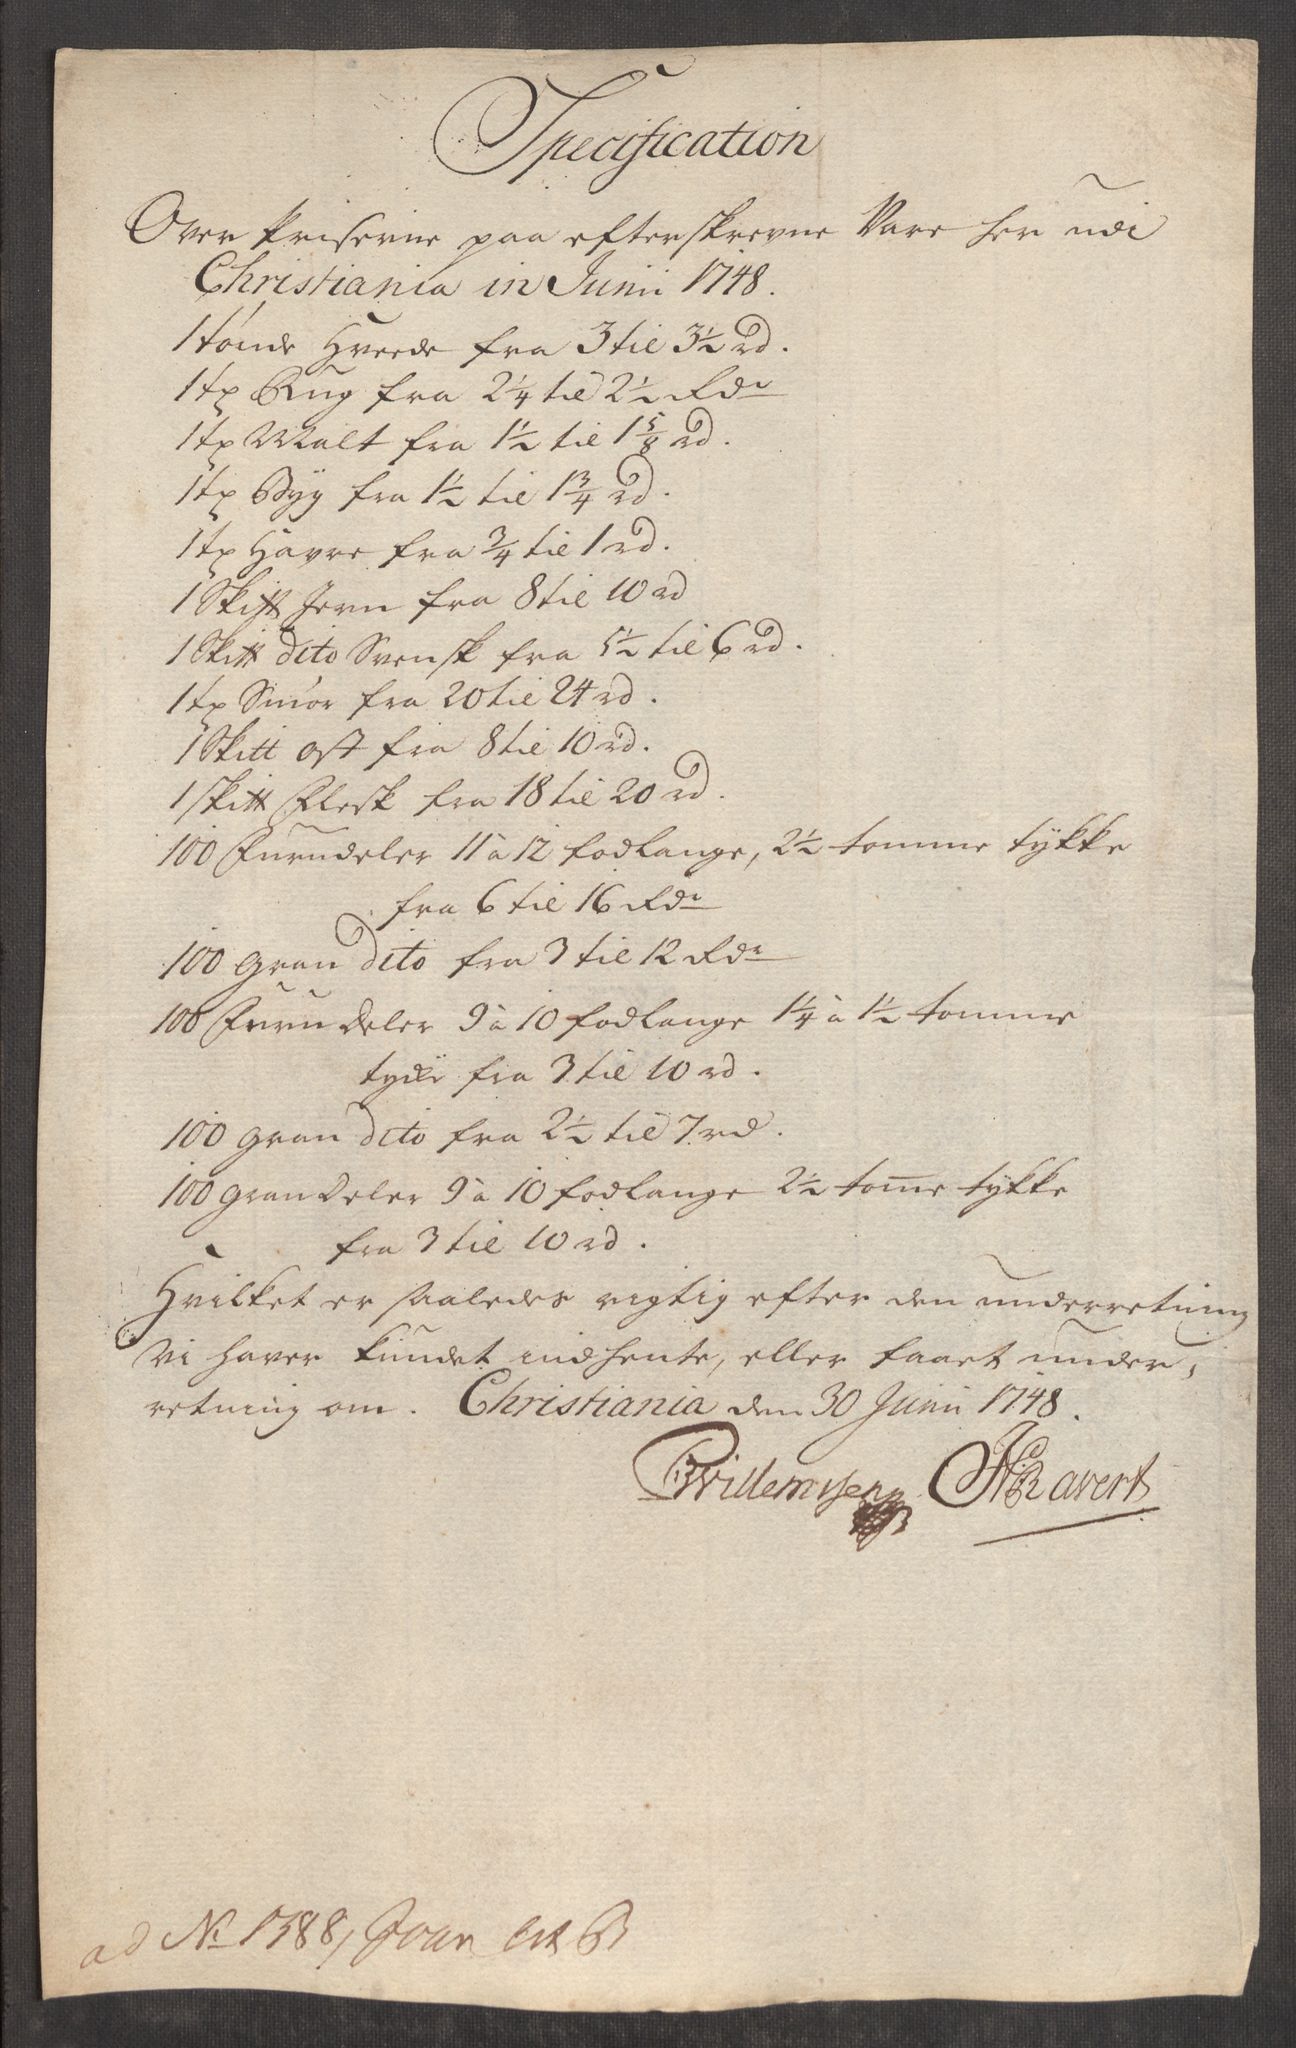 Specification
Over Priserne paa efterskrevne Vare her udi
Christiania in Junii 1748.
1 tønde Hvede fra 3 til 3½ rd.
1 tø Rug fra 2¼ til 2½ Rdr
1 tø Malt fra 1½ til 1⅝ rd.
1 tø Byg fra 1½ til 1¾ rd.
1 tø Havre fra ¾ til 1 rd.
1 Skitt Jern fra 8 til 10 rd
1 Skitt dito Svensk fra 5½ til 6 rd.
1 tø Smør fra 20 til 24 rd.
1 Skitt ost fra 8 til 10 rd.
1 skitt Flesk fra 18 til 20 rd.
100 Furudeler 11 a 12 fodlange, 2½ tomme tykke
fra 6 til 16 Rdr
100 gran dito fra 3 til 12 Rdr
100 Furudeler 9 a 10 fodlange 1¼ a 1½ tomme
tyke fra 3 til 10 rd.
100 gran dito fra 2½ til 7 rd.
100 gran Deler 9 a 10 fodlange 2½ tom̅e tykke
fra 3 til 10 rd.
Hvilket er saaledes rigtig efter den underretning
vi haver kundet indhente, eller faaet under,
retning om. Christiania den 30 Junii 1748.
Willemssen Ravert
ad No 1388, Joan Lit B